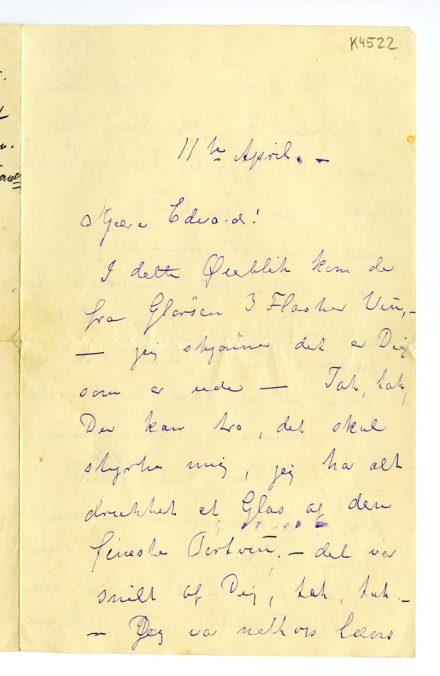 K4522
11te April. –
Kjære Edvard!
I dette Øieblik kom de
fra Glørsen 3 Flasker Vin, –
– jeg skjönner det er Dig
som er ude – Tak, tak,
Du kan tro, det skal
styrke mig, jeg har alt
drukket et Glas af den
fineste Portvin, – det var
snilt af Dig, tak, tak –
– Jeg var netkops læns